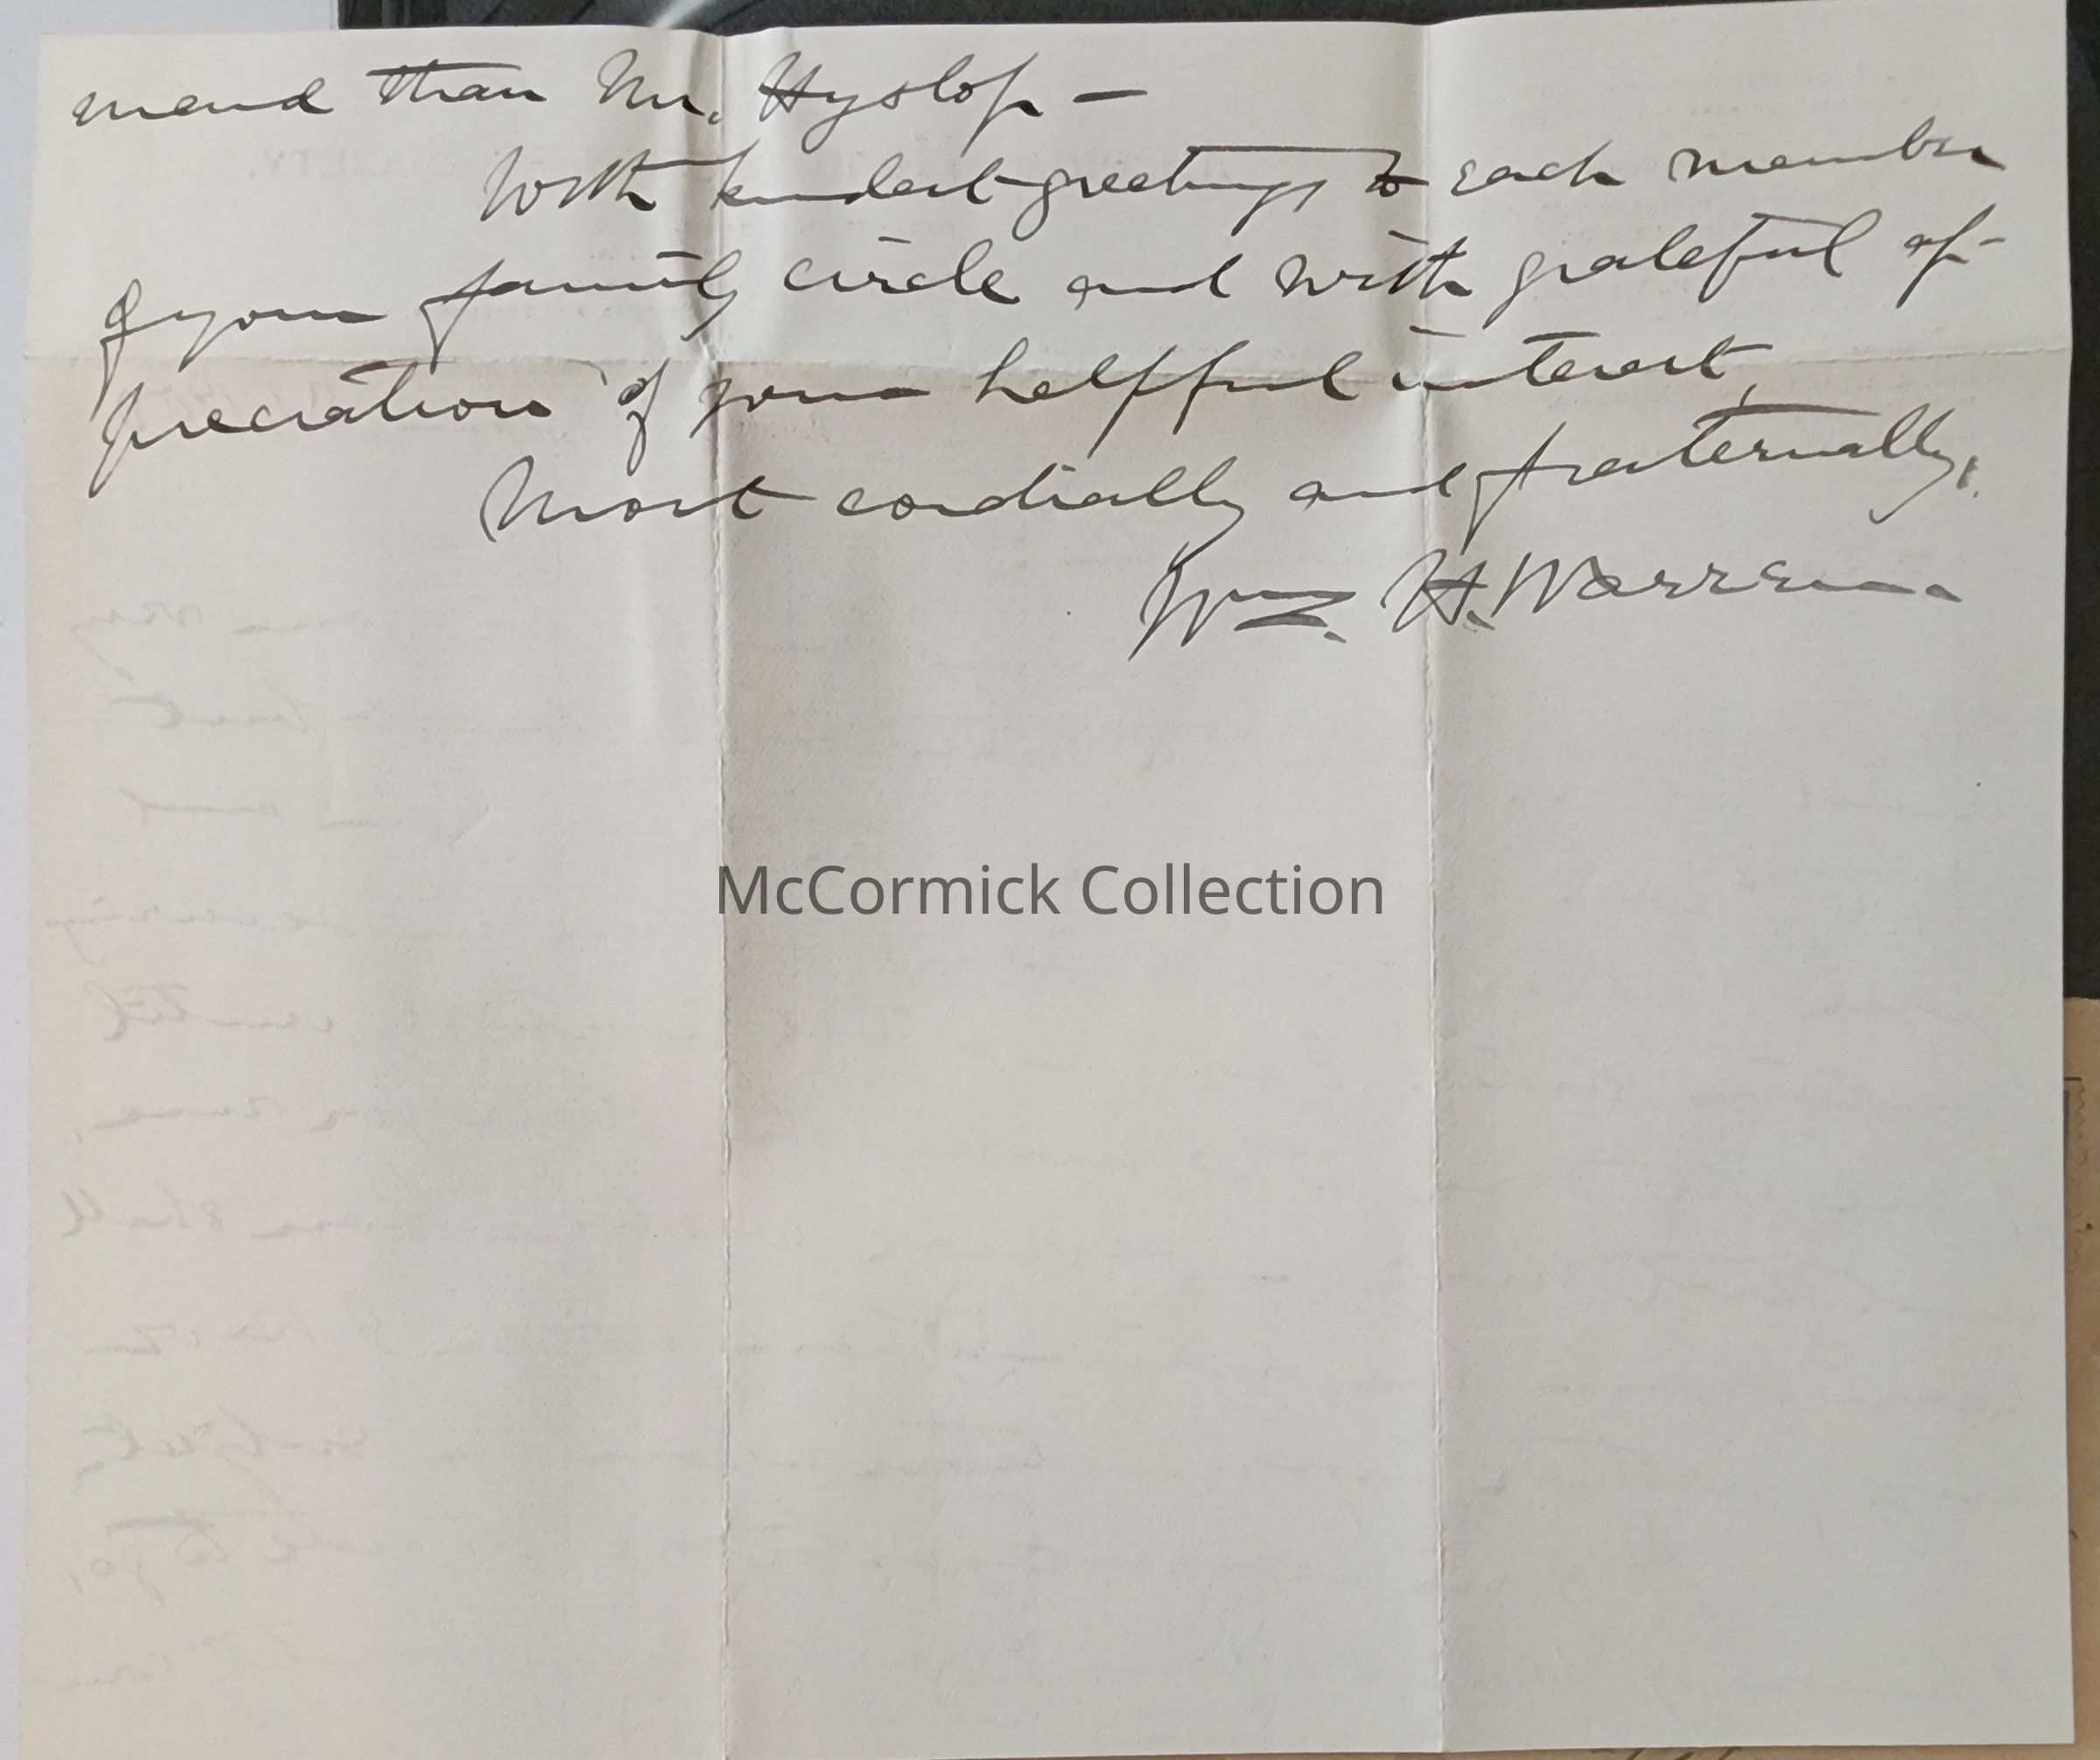 mend than Mr. Hyslop —
With kindest greetings to each member
of your family circle and with grateful ap-
preciation of your helpful interest,
Most cordially and fraternally,
Wm. H. Warren.
McCormick Collection